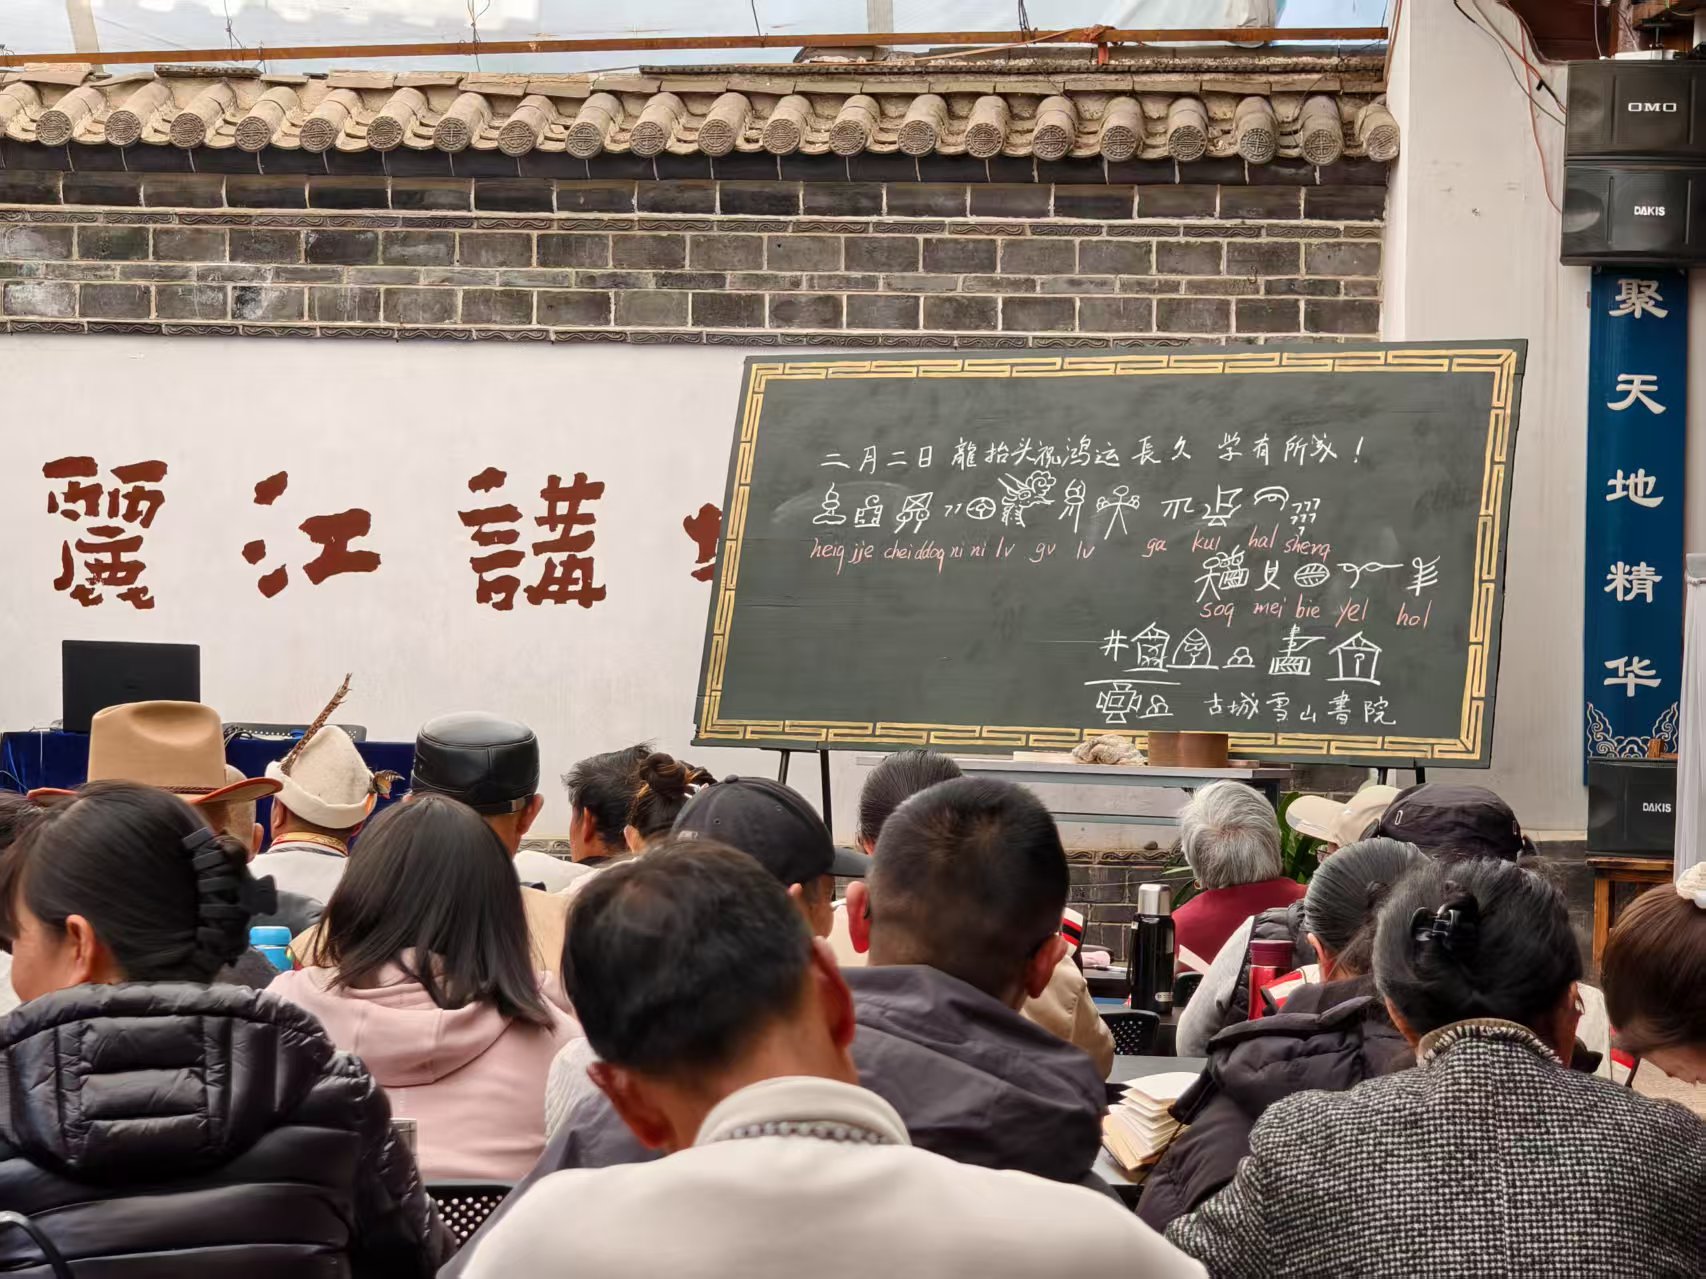 麗江講
二月二日 龍抬头祝鸿运長久 学有所成！
heiq jje cheiddoq ni ni lv gv lv ga kul hal sherq
soq mei bie yel hol
古城雪山書院
聚天地精华
OMO
DAKIS
DAKIS